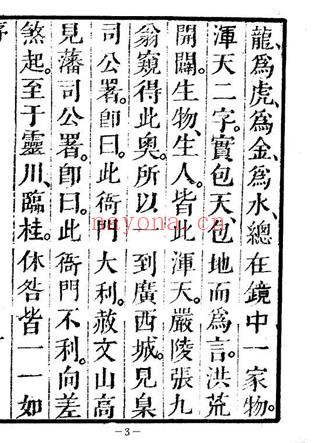 龍、爲虎、爲金、爲水、總在鏡中一家物。
渾天二字。實包天、包地而爲言。洪荒
開闢。生物、生人。皆此渾天。嚴陵張九
翁窺得此奧。所以 到廣西城。見臬
司公署。卽曰。此衙門 大利。赦文山高
見藩司公署。卽曰。此衙門不利。向差
煞起。至于靈川、臨桂。休咎皆一一如
nayona.cn
—3—